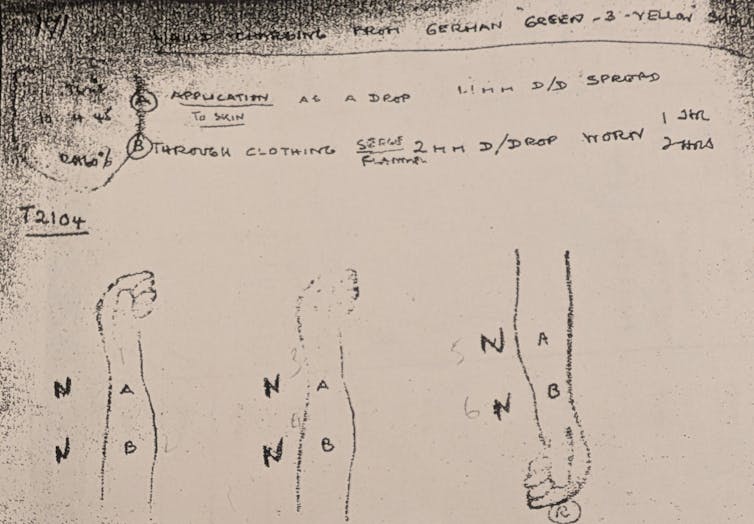 171
LIQUID CHARGING FROM GERMAN "GREEN-3-YELLOW" SHELL
10 4 45
A APPLICATION AS A DROP 1.1 MM D/D SPREAD
TO SKIN
B THROUGH CLOTHING SERGE 2 MM D/DROP WORN 1 HR
FLANNEL 2 HRS
T2104
N A N A 5 N A
N B N B 6 N B
R